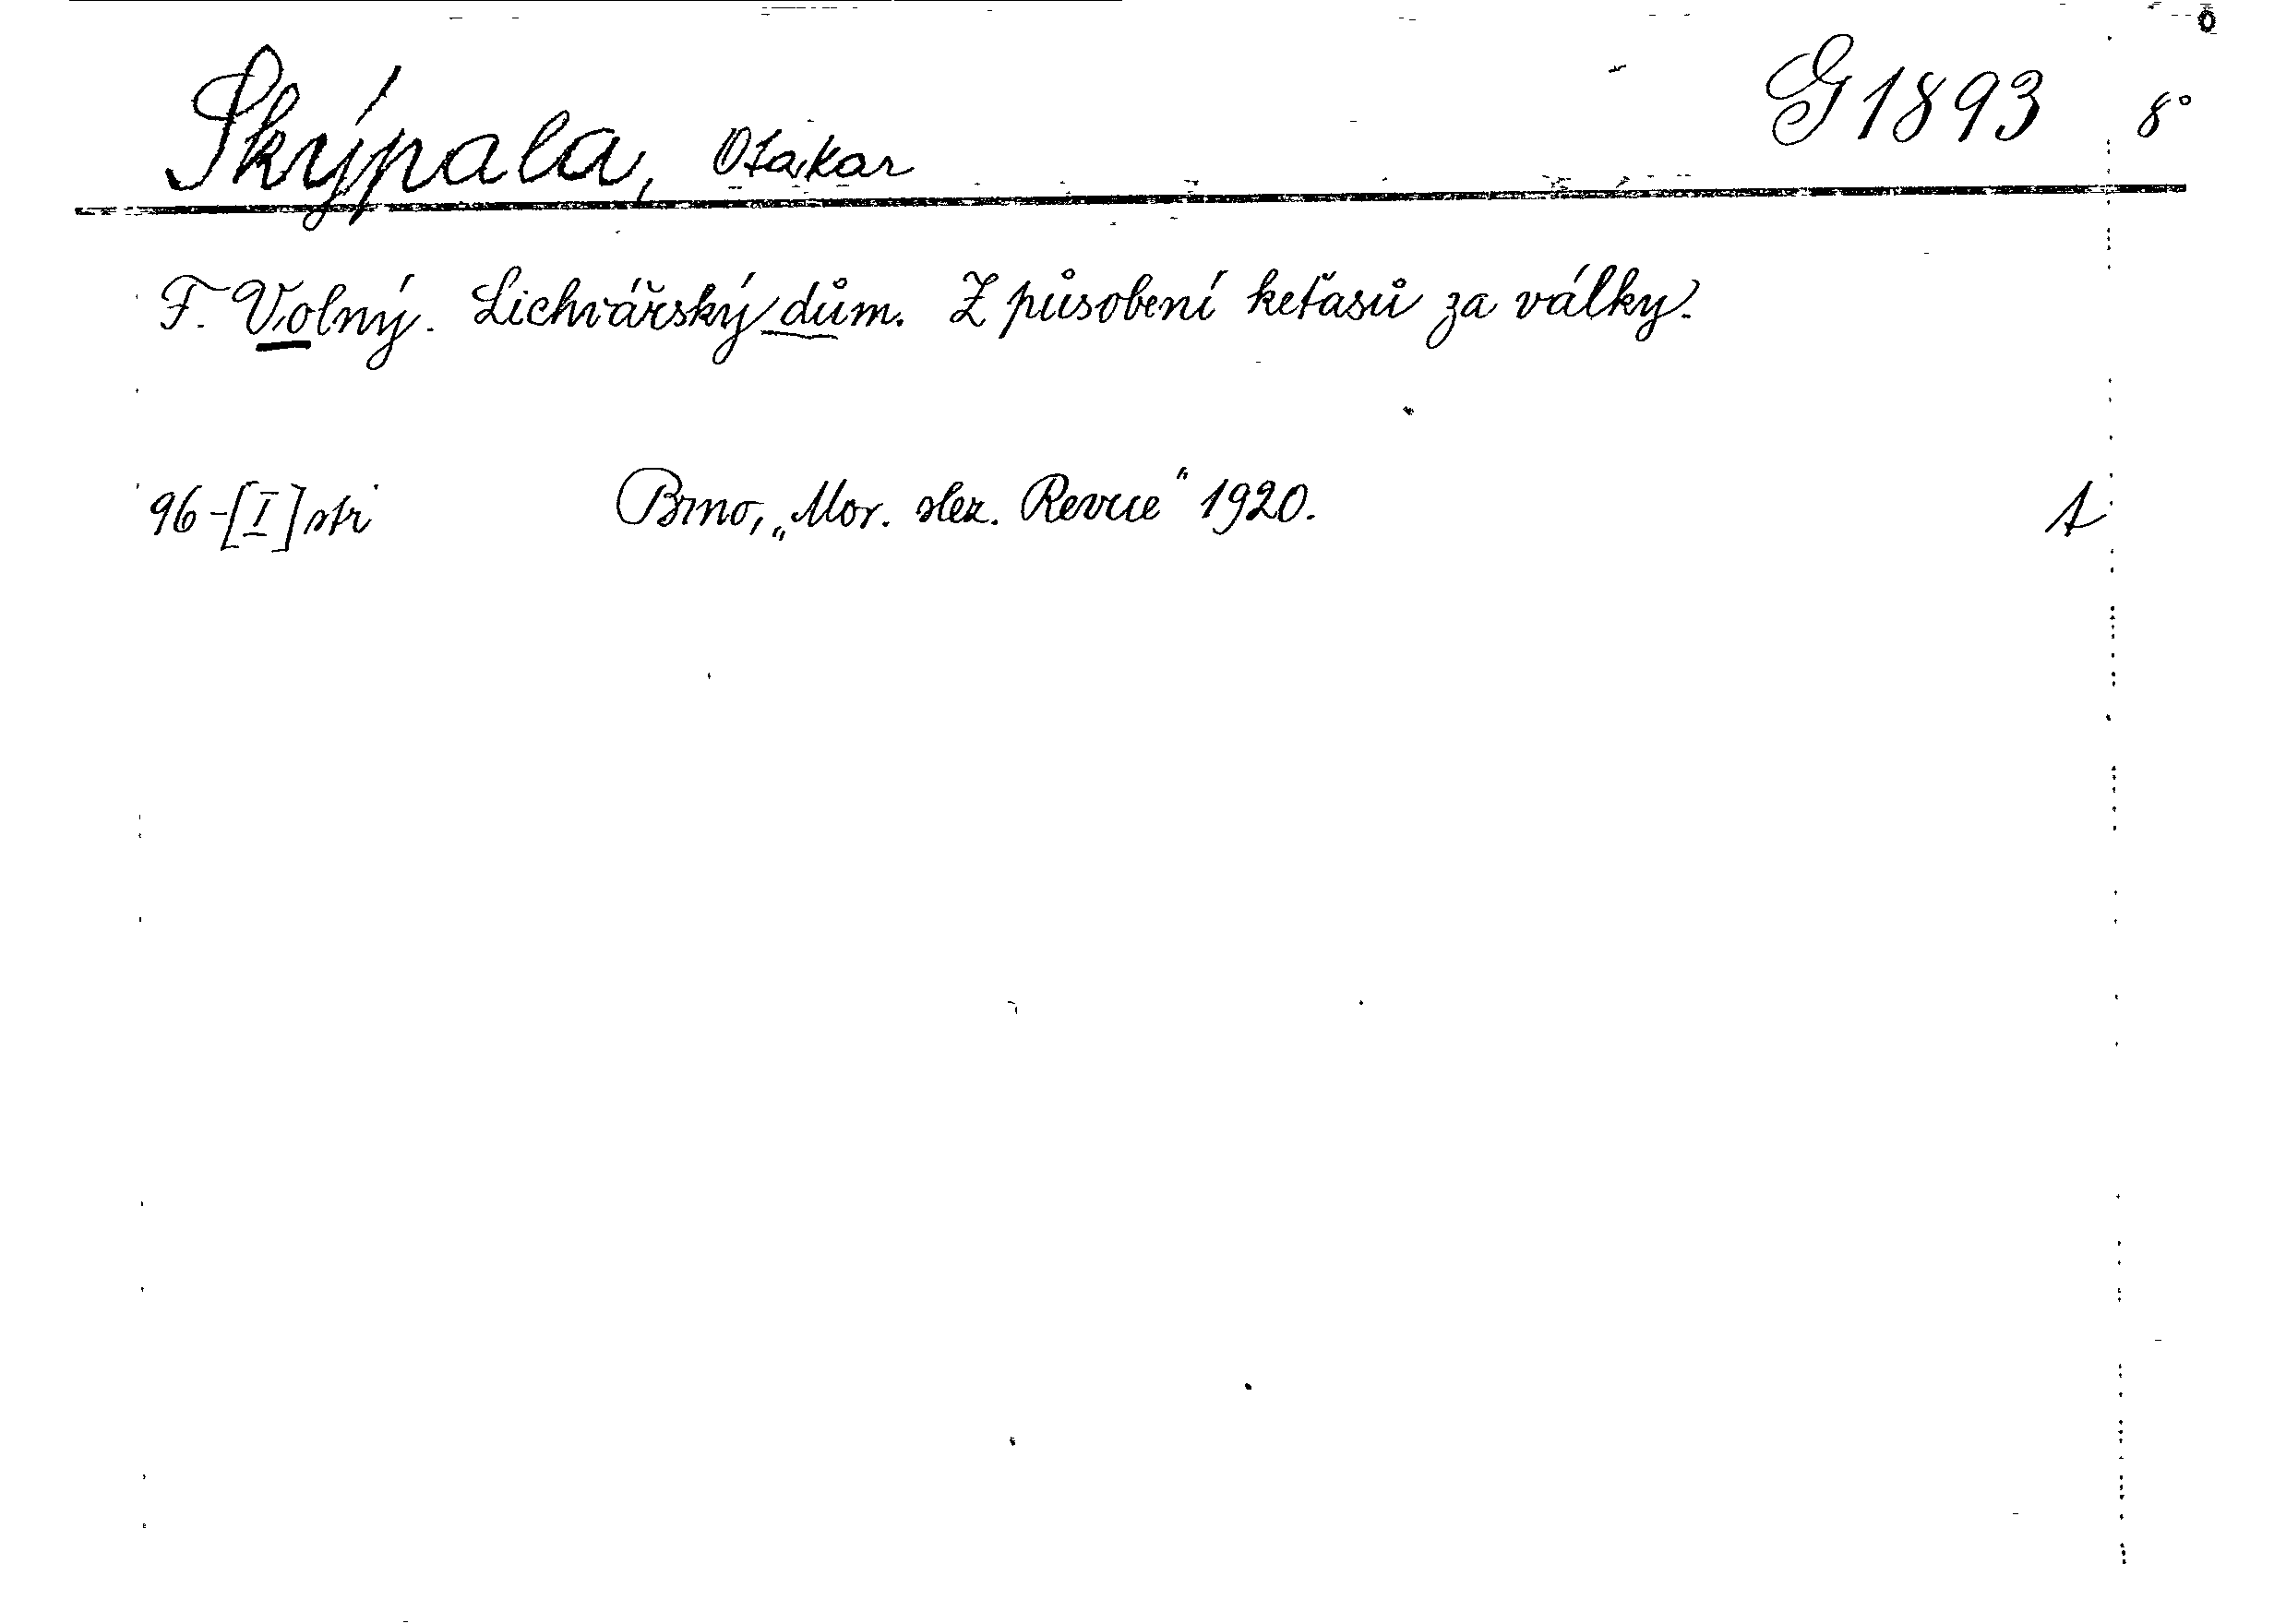 Skýpala, Otakar G 1893 8°
F. Volný. Lichvářský dům. Z působení keťasů za války.
96-[I] str Brno, „Mor. slez. Revue“ 1920. A